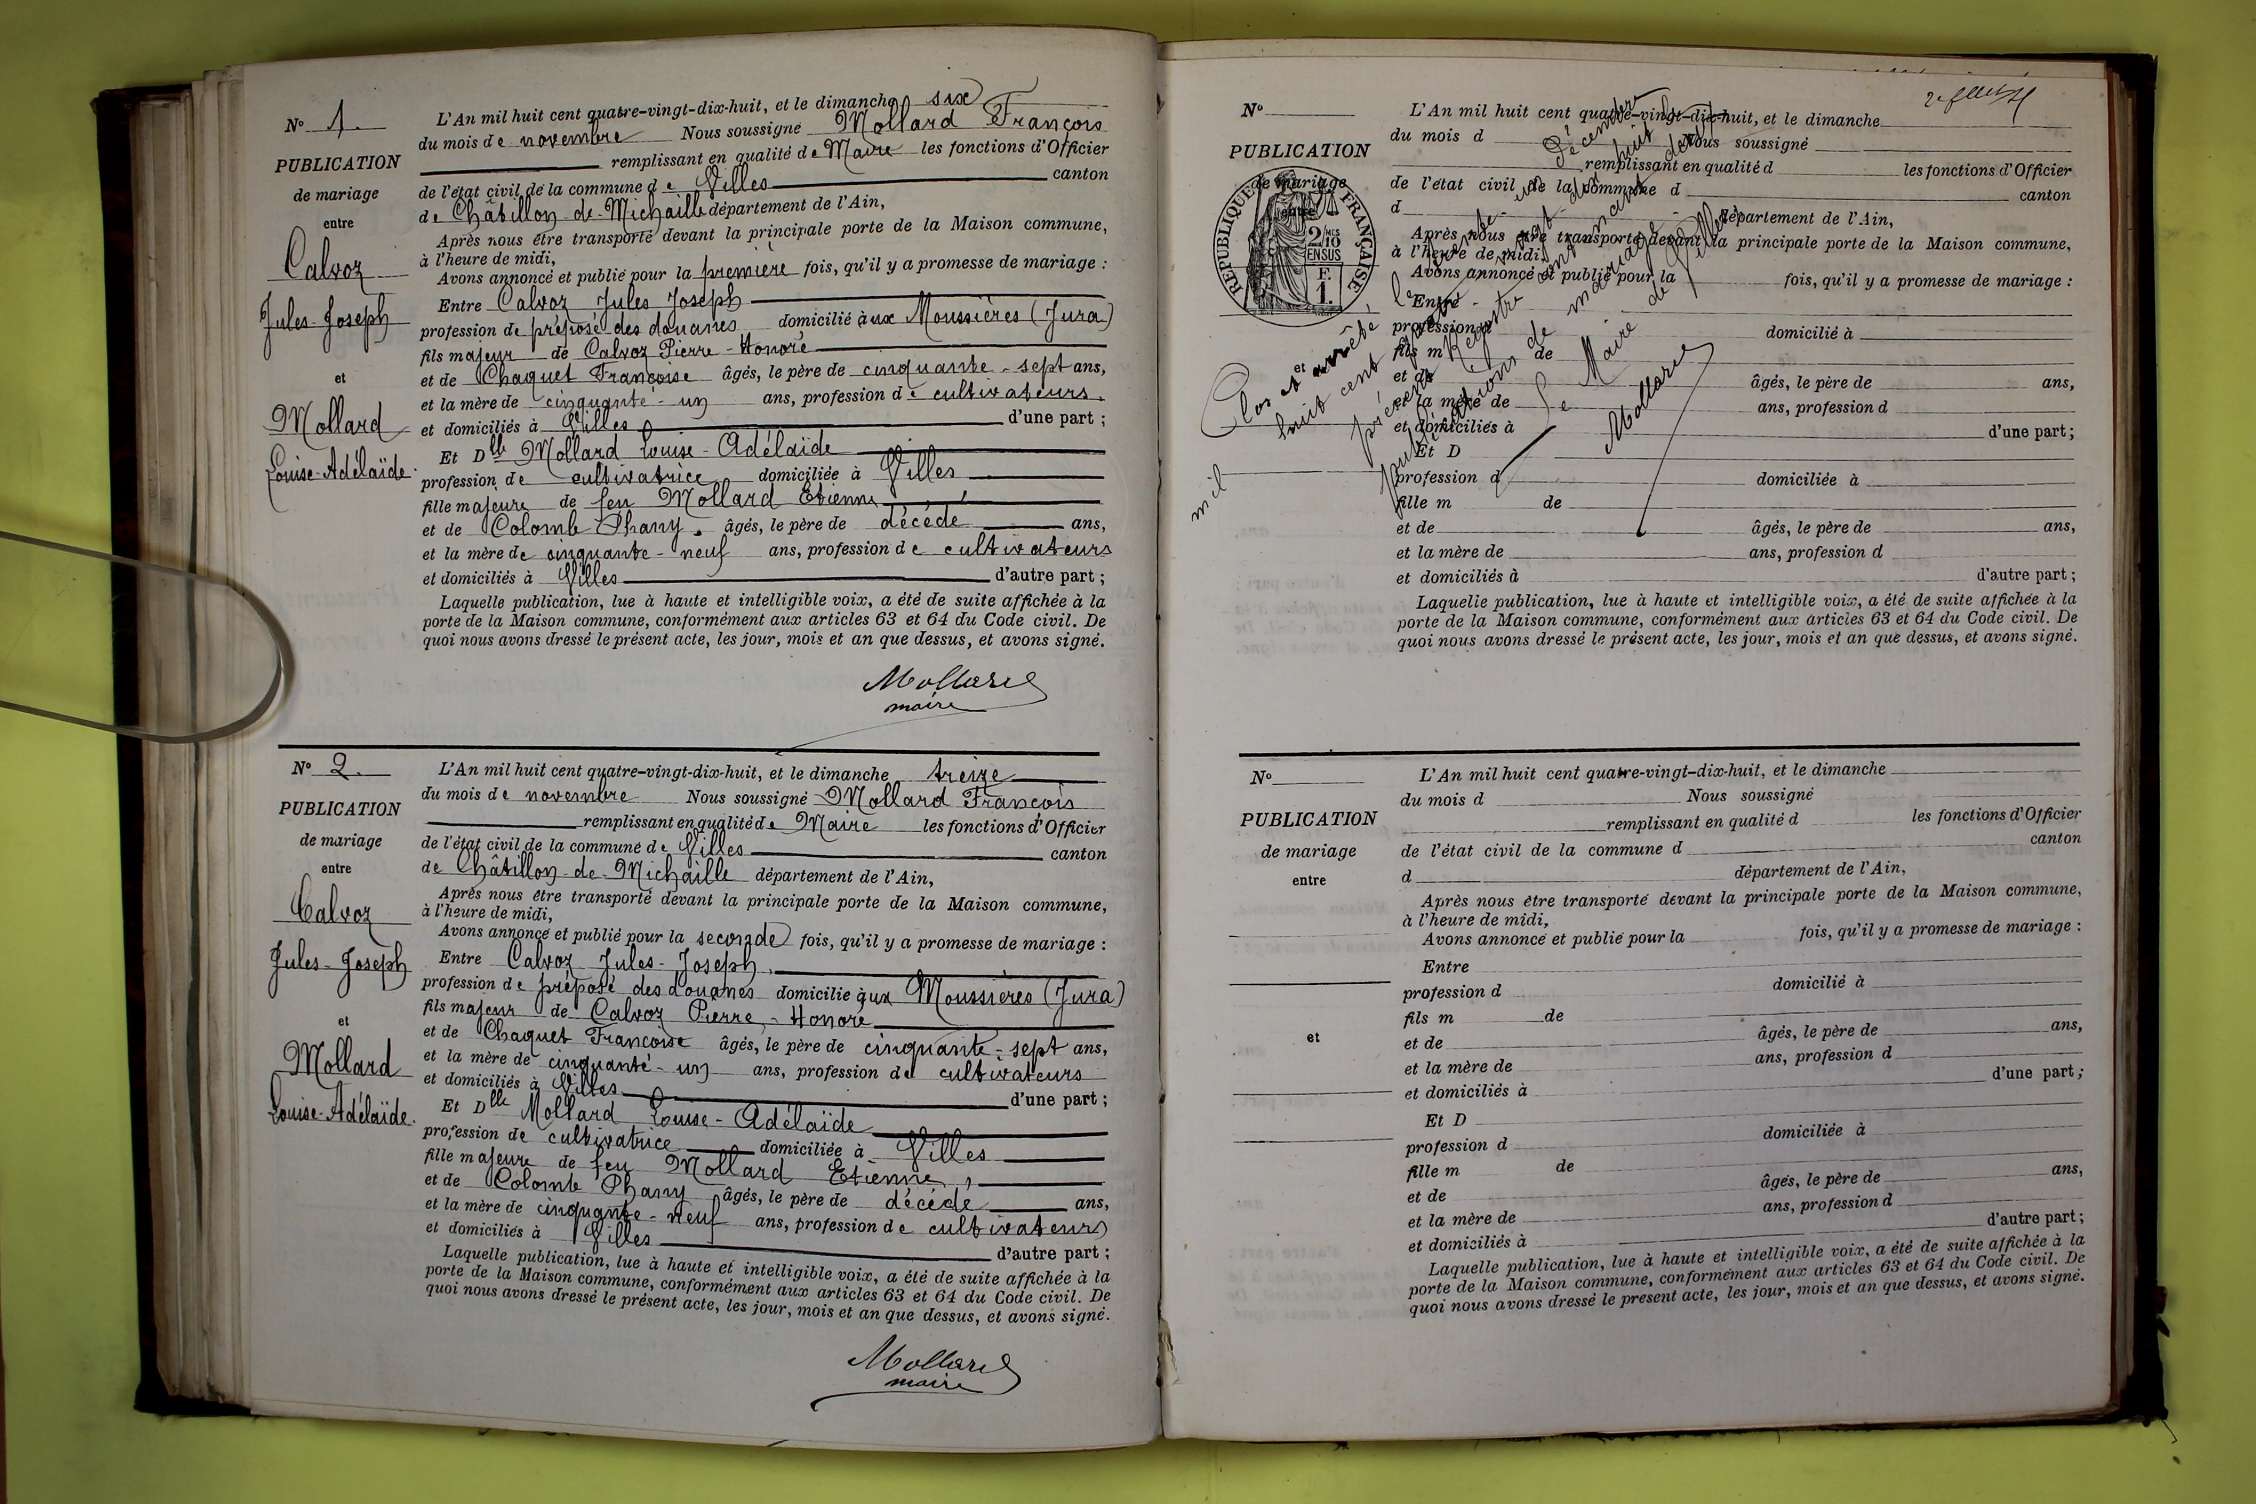 N° 1.
PUBLICATION
de mariage
entre
Calvoz
Jules-Joseph
et
Mollard
Louise-Adélaïde.
L'An mil huit cent quatre-vingt-dix-huit, et le dimanche six
du mois de novembre Nous soussigné Mollard François
remplissant en qualité de Maire les fonctions d'Officier
de l'état civil de la commune de Villes canton
de Châtillon-de-Michaille département de l'Ain,
Après nous être transporté devant la principale porte de la Maison commune,
à l'heure de midi,
Avons annoncé et publié pour la première fois, qu'il y a promesse de mariage :
Entre Calvoz Jules Joseph
profession de préposé des douanes domicilié aux Moussières (Jura)
fils majeur de Calvoz Pierre-Honoré
et de Chaquet Françoise âgés, le père de cinquante-sept ans,
et la mère de cinquante-un ans, profession de cultivateurs.
et domiciliés à Villes d'une part ;
Et Dlle Mollard Louise-Adélaïde
profession de cultivatrice domiciliée à Villes
fille majeure de feu Mollard Etienne
et de Colomb Phany. âgés, le père de décédé ans,
et la mère de cinquante-neuf ans, profession de cultivateurs
et domiciliés à Villes d'autre part ;
Laquelle publication, lue à haute et intelligible voix, a été de suite affichée à la
porte de la Maison commune, conformément aux articles 63 et 64 du Code civil. De
quoi nous avons dressé le présent acte, les jour, mois et an que dessus, et avons signé.
Mollard
maire
N° 2.
PUBLICATION
de mariage
entre
Calvoz
Jules-Joseph
et
Mollard
Louise-Adélaïde.
L'An mil huit cent quatre-vingt-dix-huit, et le dimanche treize
du mois de novembre Nous soussigné Mollard François
remplissant en qualité de Maire les fonctions d'Officier
de l'état civil de la commune de Villes canton
de Châtillon-de-Michaille département de l'Ain,
Après nous être transporté devant la principale porte de la Maison commune,
à l'heure de midi,
Avons annoncé et publié pour la seconde fois, qu'il y a promesse de mariage :
Entre Calvoz Jules-Joseph.
profession de préposé des douanes domicilié aux Moussières (Jura)
fils majeur de Calvoz Pierre-Honoré
et de Chaquet Françoise âgés, le père de cinquante-sept ans,
et la mère de cinquante-un ans, profession de cultivateurs
et domiciliés à Villes d'une part ;
Et Dlle Mollard Louise-Adélaïde
profession de cultivatrice domiciliée à Villes
fille majeure de feu Mollard Etienne,
et de Colomb Phany âgés, le père de décédé ans,
et la mère de cinquante-neuf ans, profession de cultivateurs
et domiciliés à Villes d'autre part ;
Laquelle publication, lue à haute et intelligible voix, a été de suite affichée à la
porte de la Maison commune, conformément aux articles 63 et 64 du Code civil. De
quoi nous avons dressé le présent acte, les jour, mois et an que dessus, et avons signé.
Mollard
maire
N°
PUBLICATION
de mariage
entre
RÉPUBLIQUE FRANÇAISE
2/10
EN SUS
F.
1.
et
L'An mil huit cent quatre-vingt-dix-huit, et le dimanche
du mois d Nous soussigné
remplissant en qualité d les fonctions d'Officier
de l'état civil de la commune d canton
d département de l'Ain,
Après nous être transporté devant la principale porte de la Maison commune,
à l'heure de midi,
Avons annoncé et publié pour la fois, qu'il y a promesse de mariage :
Entre
profession d domicilié à
fils m de
et de âgés, le père de ans,
et la mère de ans, profession d
et domiciliés à d'une part ;
Et D
profession d domiciliée à
fille m de
et de âgés, le père de ans,
et la mère de ans, profession d
et domiciliés à d'autre part ;
Laquelle publication, lue à haute et intelligible voix, a été de suite affichée à la
porte de la Maison commune, conformément aux articles 63 et 64 du Code civil. De
quoi nous avons dressé le présent acte, les jour, mois et an que dessus, et avons signé.
Clos et arrêté le trente-un Décembre
mil huit cent quatre vingt dix huit
présent Registre contenant deux
publications de mariage
Le Maire de Villes
Mollard
N°
PUBLICATION
de mariage
entre
et
L'An mil huit cent quatre-vingt-dix-huit, et le dimanche
du mois d Nous soussigné
remplissant en qualité d les fonctions d'Officier
de l'état civil de la commune d canton
d département de l'Ain,
Après nous être transporté devant la principale porte de la Maison commune,
à l'heure de midi,
Avons annoncé et publié pour la fois, qu'il y a promesse de mariage :
Entre
profession d domicilié à
fils m de
et de âgés, le père de ans,
et la mère de ans, profession d
et domiciliés à d'une part ;
Et D
profession d domiciliée à
fille m de
et de âgés, le père de ans,
et la mère de ans, profession d
et domiciliés à d'autre part ;
Laquelle publication, lue à haute et intelligible voix, a été de suite affichée à la
porte de la Maison commune, conformément aux articles 63 et 64 du Code civil. De
quoi nous avons dressé le présent acte, les jour, mois et an que dessus, et avons signé.